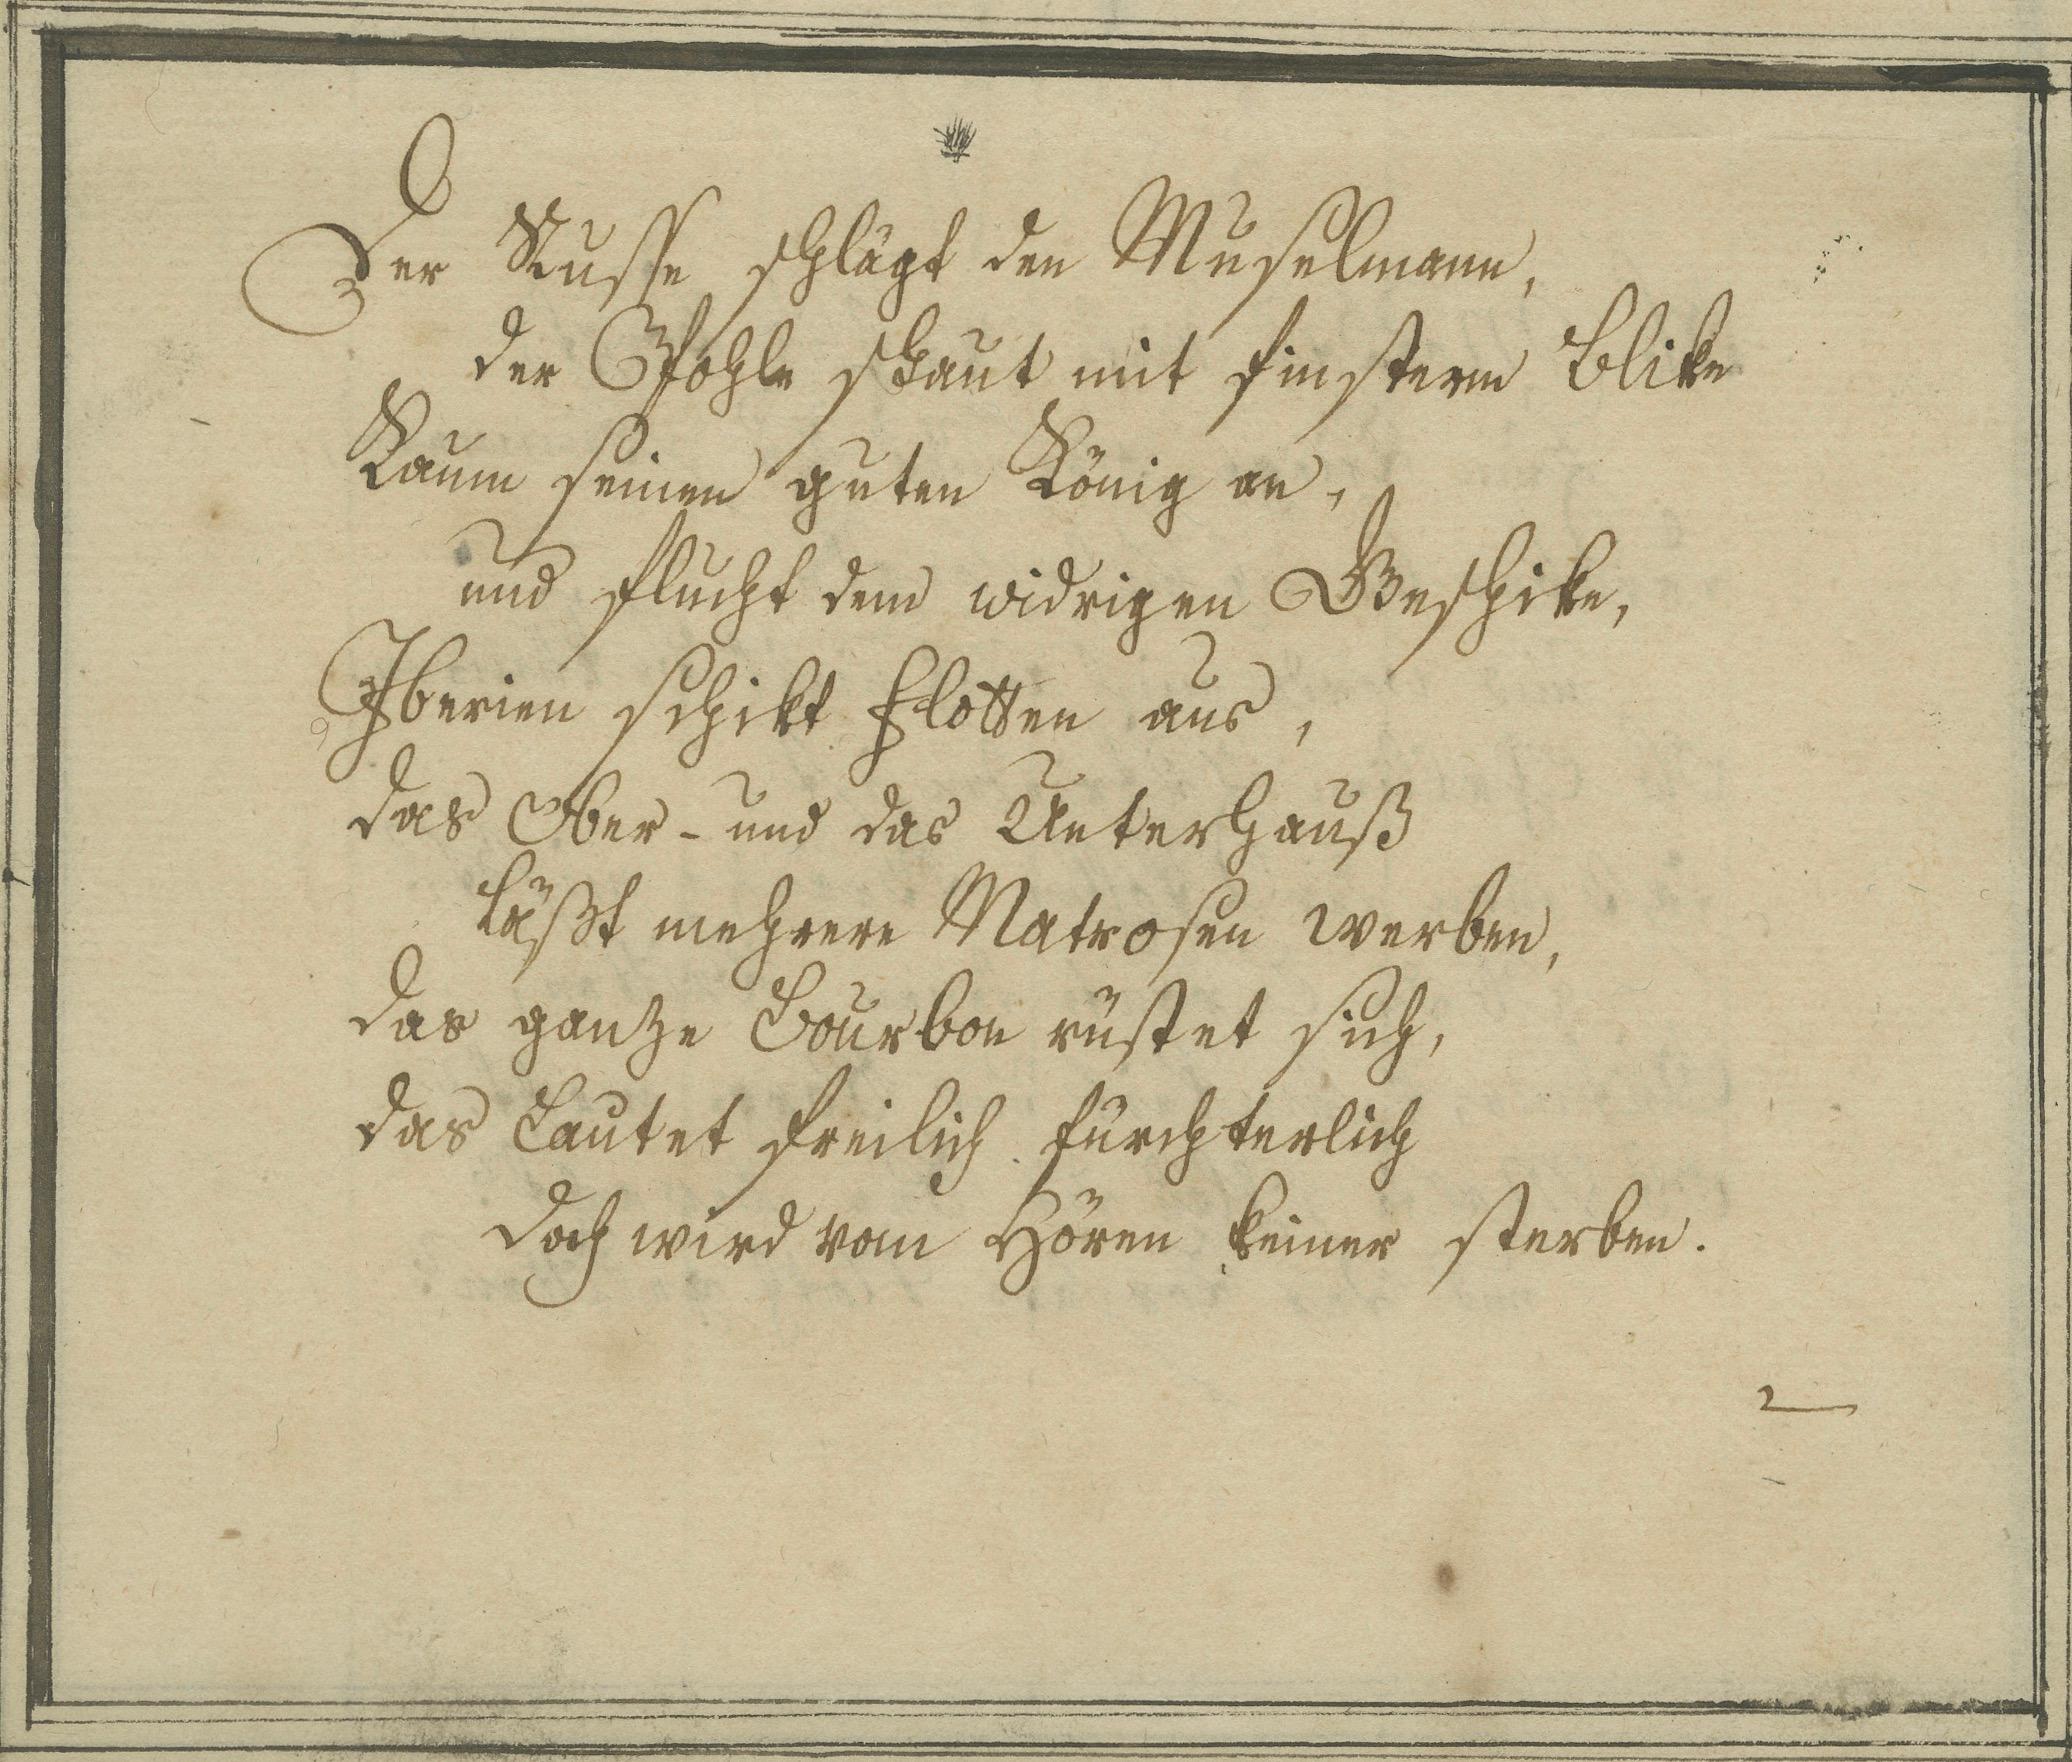 Der Russe schlägt den Muselmann,
der Pohle schaut mit finsterm Blike
Kaum seinen guten König an,
und flucht dem widrigen Geschike,
Iberien schikt Flotten aus,
das Ober- und das Unterhauß
läßt mehrere Matrosen werben,
das ganze Bourbon rüstet sich,
das Lautet freilich fürchterlich
doch wird vom Hören keiner sterben.